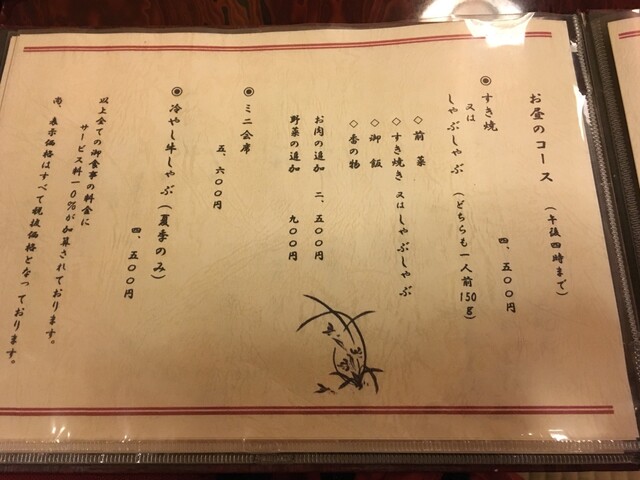 お昼のコース （午後四時まで）
◉ すき焼 四、五〇〇円
又は
しゃぶしゃぶ （どちらも一人前150g）
◇ 前菜
◇ すき焼き又はしゃぶしゃぶ
◇ 御飯
◇ 香の物
お肉の追加 二、五〇〇円
野菜の追加 九〇〇円
◉ ミニ会席
五、六〇〇円
◉ 冷やし牛しゃぶ（夏季のみ）
四、五〇〇円
以上全ての御食事の料金に
サービス料一〇％が加算されております。
尚、表示価格はすべて税抜価格となっております。